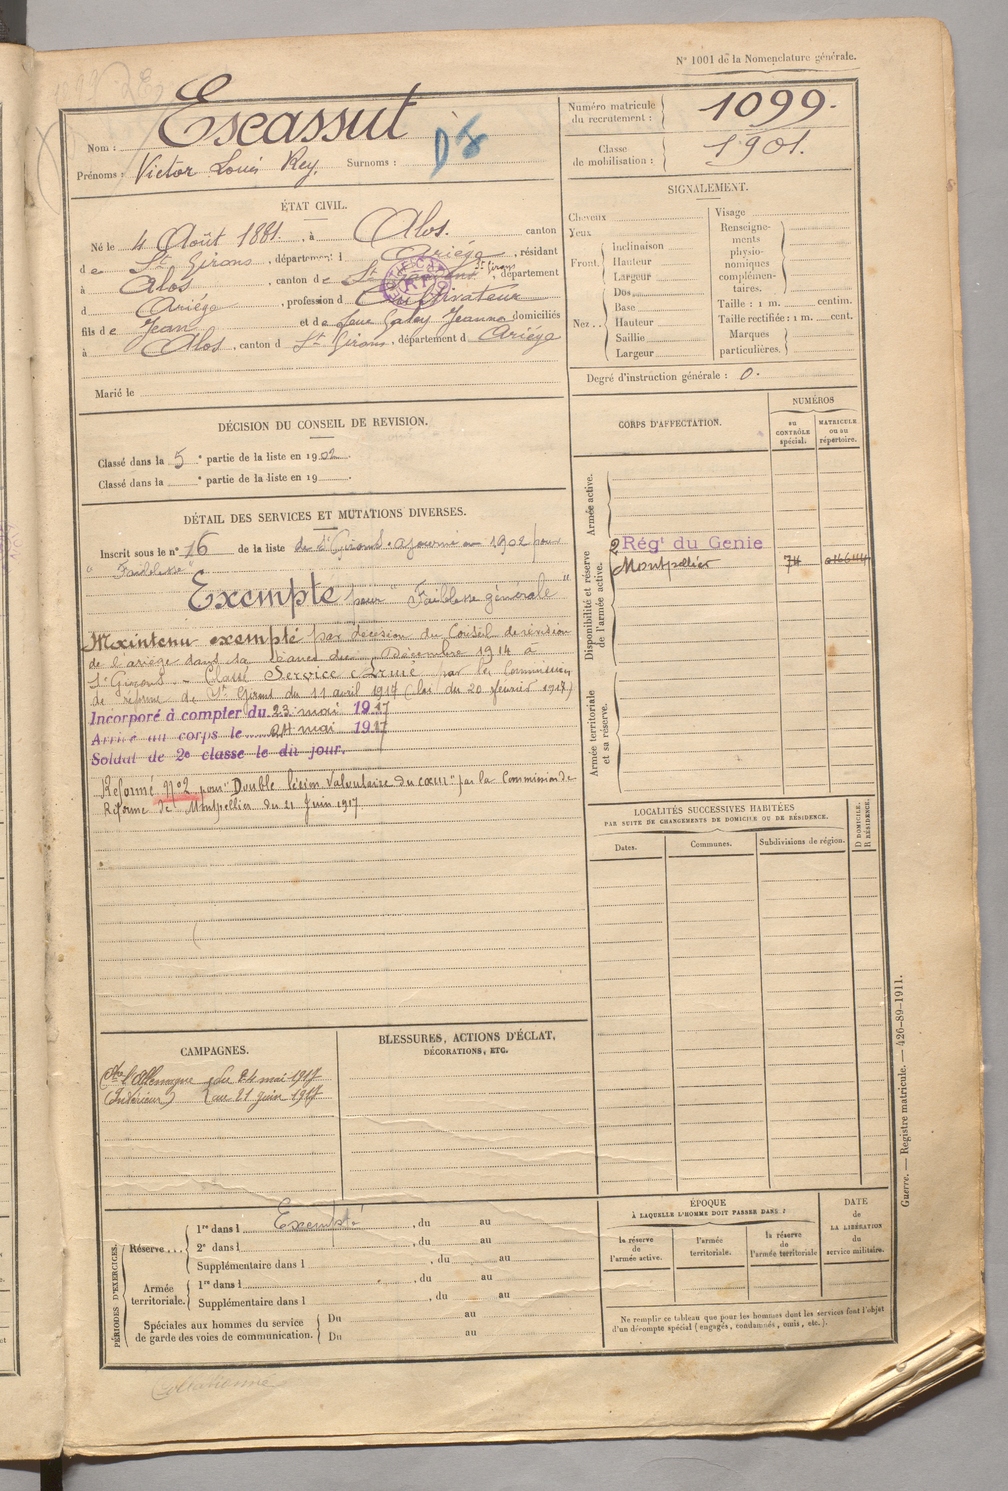 N° 1001 de la Nomenclature générale.
Nom : Escassut
Prénoms : Victor Louis Rey. Surnoms :
Numéro matricule du recrutement : 1099.
Classe de mobilisation : 1901.
ÉTAT CIVIL.
Né le 4 Août 1881, à Alos. canton
de St Girons, département d Ariège, résidant
à Alos, canton de St Girons, département
d Ariège, profession d Cultivateur
fils de Jean et de feue Galey Jeanne domiciliés
à Alos, canton d St Girons, département d Ariège
Marié le
DÉCISION DU CONSEIL DE REVISION.
Classé dans la 5e partie de la liste en 1902.
Classé dans la e partie de la liste en 19
DÉTAIL DES SERVICES ET MUTATIONS DIVERSES.
Inscrit sous le n° 16 de la liste de St Girons. ajourné en 1902 pour
"Faiblesse"
Exempté pour "Faiblesse générale"
Maintenu exempté par décision du Conseil de révision
de l'ariège dans sa séance du Décembre 1914 à
St Girons - Classé Service Armé par la Commission
de réforme de St Girons du 11 avril 1917 (loi du 20 février 1917)
Incorporé à compter du 23 mai 1917
Arrivé au corps le 24 mai 1917
Soldat de 2e classe le dit jour.
Réformé N°2 pour "Double lésion valvulaire du cœur" par la Commission de
Réforme de Montpellier du 21 Juin 1917.
CAMPAGNES.
Cre l'Allemagne du 24 mai 1917
(Intérieur) au 21 juin 1917
BLESSURES, ACTIONS D'ÉCLAT,
DÉCORATIONS, ETC.
PÉRIODES D'EXERCICES.
Réserve...
1re dans l Exempté, du au
2e dans l, du au
Supplémentaire dans l, du au
Armée territoriale.
1re dans l, du au
Supplémentaire dans l, du au
Spéciales aux hommes du service de garde des voies de communication.
Du au
Du au
SIGNALEMENT.
Cheveux
Yeux
Front.
Inclinaison
Hauteur
Largeur
Nez..
Dos
Base
Hauteur
Saillie
Largeur
Visage
Renseignements physionomiques complémentaires.
Taille : 1 m. centim.
Taille rectifiée : 1 m. cent.
Marques particulières.
Degré d'instruction générale : 0.
CORPS D'AFFECTATION.
NUMÉROS
au CONTRÔLE spécial.
MATRICULE ou au répertoire.
Armée active.
Disponibilité et réserve de l'armée active.
2 Rég' du Genie
Montpellier 74
Armée territoriale et sa réserve.
LOCALITÉS SUCCESSIVES HABITÉES
PAR SUITE DE CHANGEMENTS DE DOMICILE OU DE RÉSIDENCE.
Dates.
Communes.
Subdivisions de région.
D DOMICILE.
R RÉSIDENCE.
ÉPOQUE
À LAQUELLE L'HOMME DOIT PASSER DANS :
la réserve de l'armée active.
l'armée territoriale.
la réserve de l'armée territoriale
DATE de LA LIBÉRATION du service militaire.
Ne remplir ce tableau que pour les hommes dont les services font l'objet
d'un décompte spécial (engagés, condamnés, omis, etc.).
Guerre. — Registre matricule. — 426-89-1911.